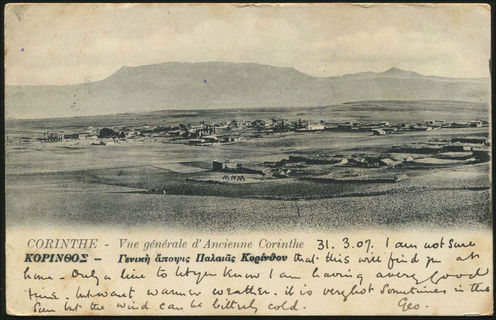 CORINTHE - Vue générale d'Ancienne Corinthe
ΚΟΡΙΝΘΟΣ - Γενικὴ ἄποψις Παλαιᾶς Κορίνθου
31.3.07. I am not sure
that this will find you at
home - Only a line to let you know I am having a very good
time, but want warmer weather. it is very hot sometimes in the
sun but the wind can be bitterly cold. Geo.